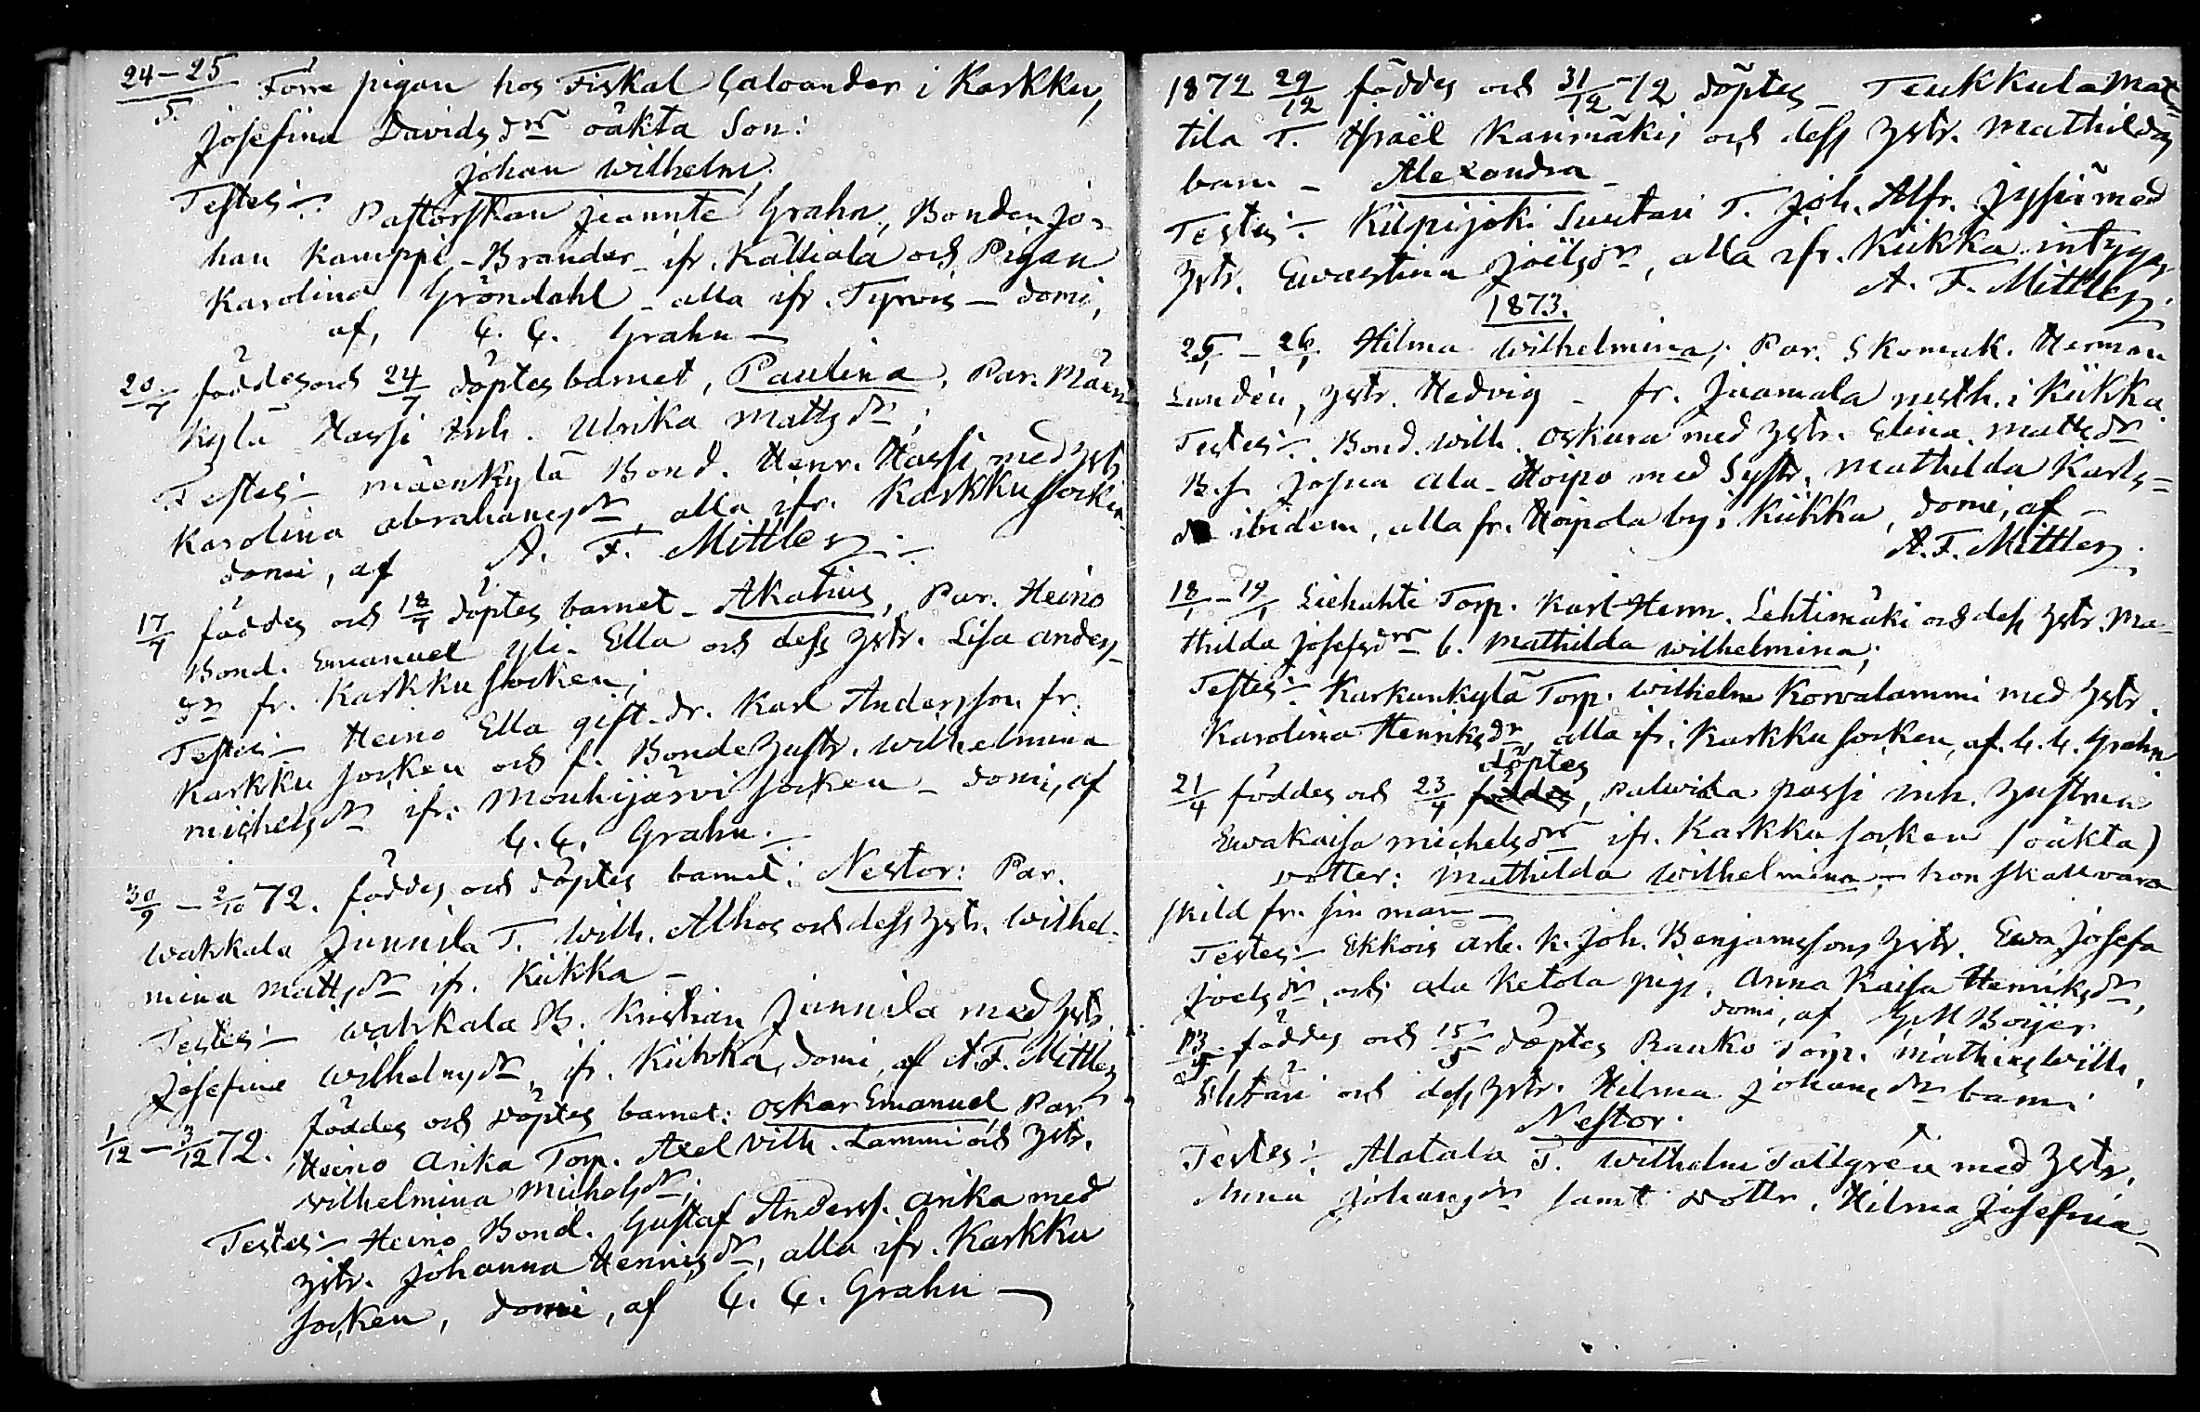 24–25/5. Förre pigan hos Fiskal Saloander i Karkku,
Josefina Davidsdr oäkta Son:
Johan Wilhelm.
Testes:– Pastorskan Jeannte Grahn, Bonden Jo-
han Kamppi–Brander ifr. Kalliala och Pigan
Karolina Gröndahl – alla ifr. Tyrvis – domi,
af, C. C. Grahn –
20/7 föddes och 24/7 döptes barnet, Paulina, Par. Mäen-
kylä Hassi Inh. Ulrika Mattsdr;
Testes:– Mäenkylä Bond. Henr. Hassi med Hstr
Karolina Abrahamsdr, alla ifr. Karkku Socken.
domi, af A. F. Mittler.–
17/7 föddes och 18/7 döptes barnet – Akatius, Par. Heino
Bond. Emanuel Yli-Ella och dess Hstr. Lisa Anders-
dr fr. Karkku Socken;
Testes:– Heino Ella gift-dr. Karl Andersson fr.
Karkku Socken och f. Bonde Hustr. Wilhelmina
Michelsdr ifr: Mouhijärvi Socken – domi, af
C. C. Grahn.–
30/9 – 2/10 72. föddes och döptes barnet: Nestor: Par.
Wakkala Junnila T. Wilh. Alhos och dess Hstr. Wilhel-
mina Mattsdr ifr. Kiikka –
Testes:– Wakkala B. Kristian Junnila med Hstr
Josefina Wilhelmsdr, ifr. Kiikka, domi, af A. F. Mittler
1/12 – 3/12 72. föddes och döptes barnet: Oskar Emanuel Par.
Heino Arika Torp. Axel Wilh. Lammi och Hstr.
Wilhelmina Michelsdr;
Testes:– Heino Bond. Gustaf Anderss. Arika med
Hstr. Johanna Hennigsdr, alla ifr. Karkku
Socken, domi, af C. C. Grahn –
1872 29/12 föddes och 31/12 72 döptes – Teukkula Mat-
tila T. Israël Kanimäkis och dess Hstr. Mathildas
barn – Alexandra –
Testes:– Kilpijoki Suutari T. Joh. Alfr. med
Hstr. Ewastina Joëlsdr, alla ifr. Kiikka intygar
A. F. Mittler.
1873.
25/1 – 26/1 Hilma Wilhelmina; Par. Skomak. Herman
Lundén, Hstr. Hedvig – fr. Juamala i Kiikka.
Testes:– Bond. Wilh. Oskara med Hstr. Elina Mattsdr
B.s. Josua Ala-Hoipo med Systr. Mathilda Karls-
dr ibidem, alla fr. Hoipola by i Kiikka, domi, af –
A. F. Mittler.
18/1 – 19/1 Liehahti Torp. Karl Herm. Lehtimäki och dess Hstr. Ma-
thilda Josefsdr b. Mathilda Wilhelmina;
Testes:– Karkunkylä Torp. Wilhelm Korvalammi med Hstr.
Karolina Henriksdr alla ifr: Karkku Socken, af. C. C. Grahn
döptes
21/4 föddes och 23/4 föddes, Palwiala Passi inh. Hustrun
Ewakaisa Michelsdr ifr. Karkku Socken (oäkta)
dotter: Mathilda Wilhelmina – hon skall vara
skild fr. sin man –
Testes:– Ekkois Arb. K. Joh. Benjamssons Hstr. Ewa Josefa
Joelsdr, och Ala Ketola pig. Anna Kaisa Henriksdr,
domi, af G M Boijer
13/5 föddes och 15/5 döptes Rauko Torp. Mathias Wilh.
och dess Hstr. Hilma Johansdr barn:
Nestor.
Testes:– Alatalo T. Wilhelm Tallgrén med Hstr.
Anna Johansdr samt dottr. Hilma Josefina –